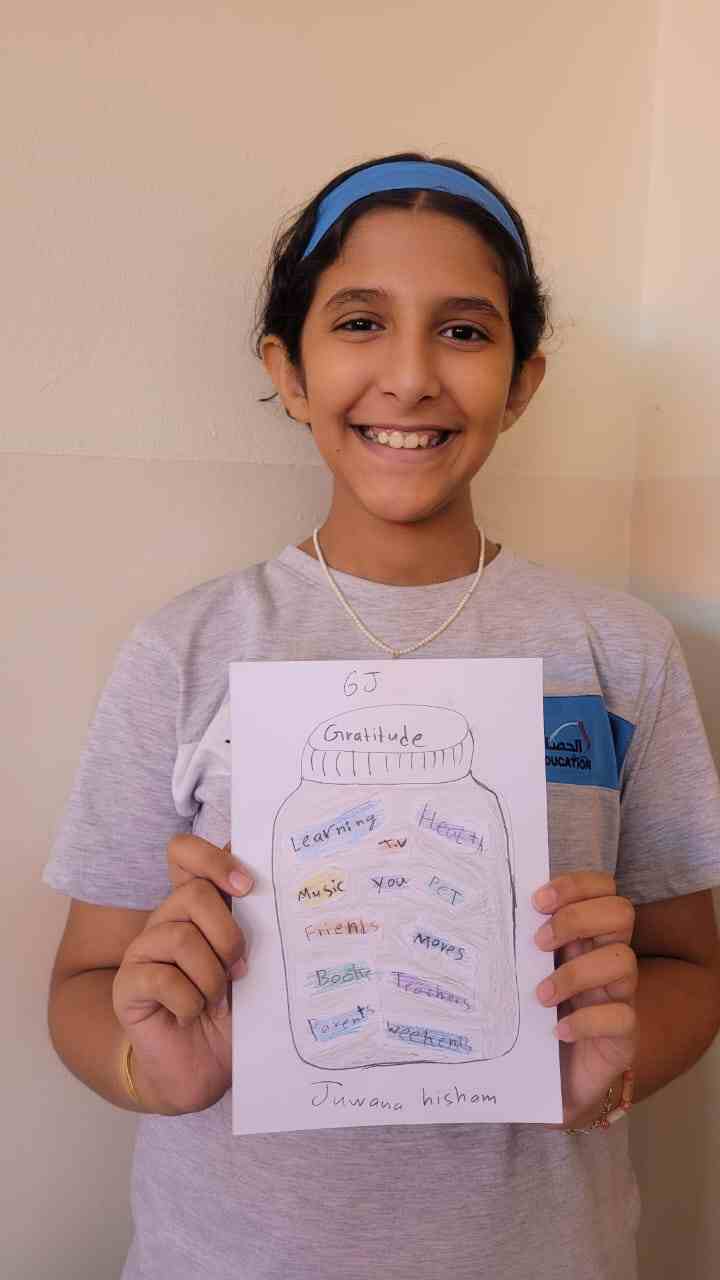 GJ
Gratitude
Learning Health
T.V
Music you PeT
Friends Moves
Books Teachers
Parents weekends
Juwana hisham
الحصا
DUCATION